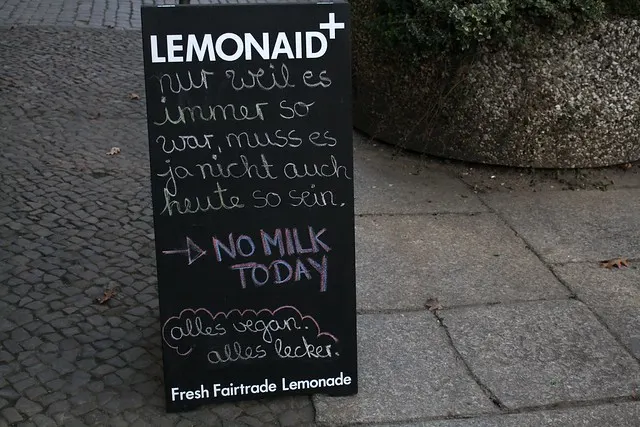 LEMONAID+
nur weil es
immer so
war, muss es
ja nicht auch
heute so sein.
→ NO MILK
TODAY
alles vegan.
alles lecker.
Fresh Fairtrade Lemonade